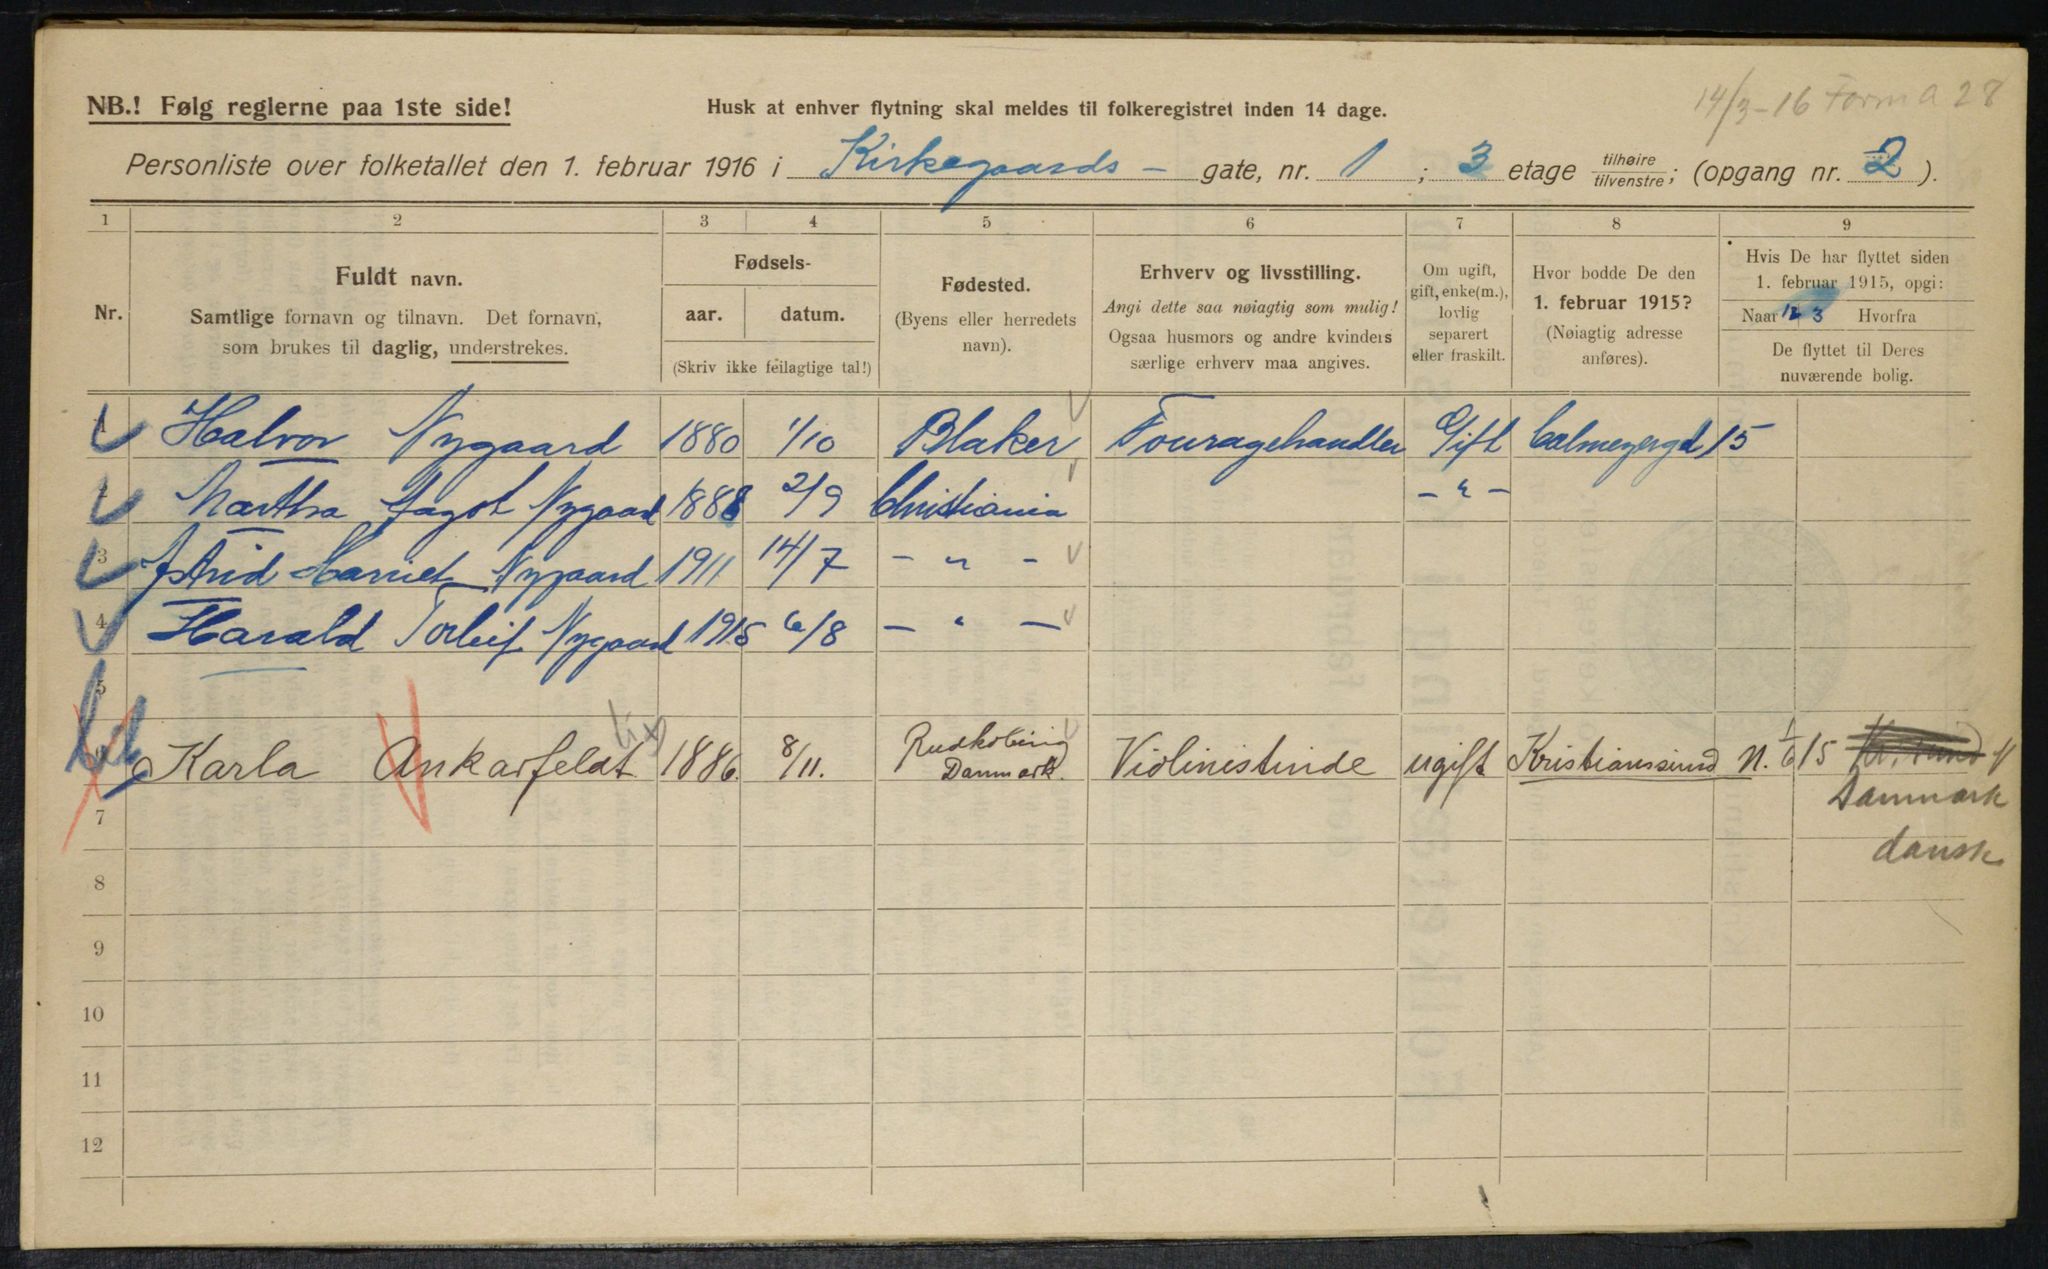 14/3-16 Form a 28
NB.! Følg reglerne paa 1ste side!
Husk at enhver flytning skal meldes til folkeregistret inden 14 dage.
Personliste over folketallet den 1. februar 1916 i Kirkegaards- gate, nr. 1 ; 3 etage tilhøire/tilvenstre; (opgang nr. 2 ).
1 2 3 4 5 6 7 8 9
Nr.
Fuldt navn.
Samtlige fornavn og tilnavn. Det fornavn,
som brukes til daglig, understrekes.
Fødsels-
aar. datum.
(Skriv ikke feilagtige tal!)
Fødested.
(Byens eller herredets
navn).
Erhverv og livsstilling.
Angi dette saa nøiagtig som mulig!
Ogsaa husmors og andre kvinders
særlige erhverv maa angives.
Om ugift,
gift, enke(m.),
lovlig
separert
eller fraskilt.
Hvor bodde De den
1. februar 1915?
(Nøiagtig adresse
anføres).
Hvis De har flyttet siden
1. februar 1915, opgi:
Naar 12 3 Hvorfra
De flyttet til Deres
nuværende bolig.
1 Halvor Nygaard 1880 1/10 Blaker Fouragehandler Gift Calmeyergd 15
2 Martha Nygaard 1888 2/9 Christiania - " -
3 Astrid Harriet Nygaard 1911 14/7 - " -
4 Harald Torleif Nygaard 1915 6/8 - " -
5
6 Karla Ankarfeldt 1886. 8/11. Rudkobing
Danmark. Violinistinde ugift Kristianssund N. 1/6 15 Kr. sund N
Danmark
7
dansk
8
9
10
11
12